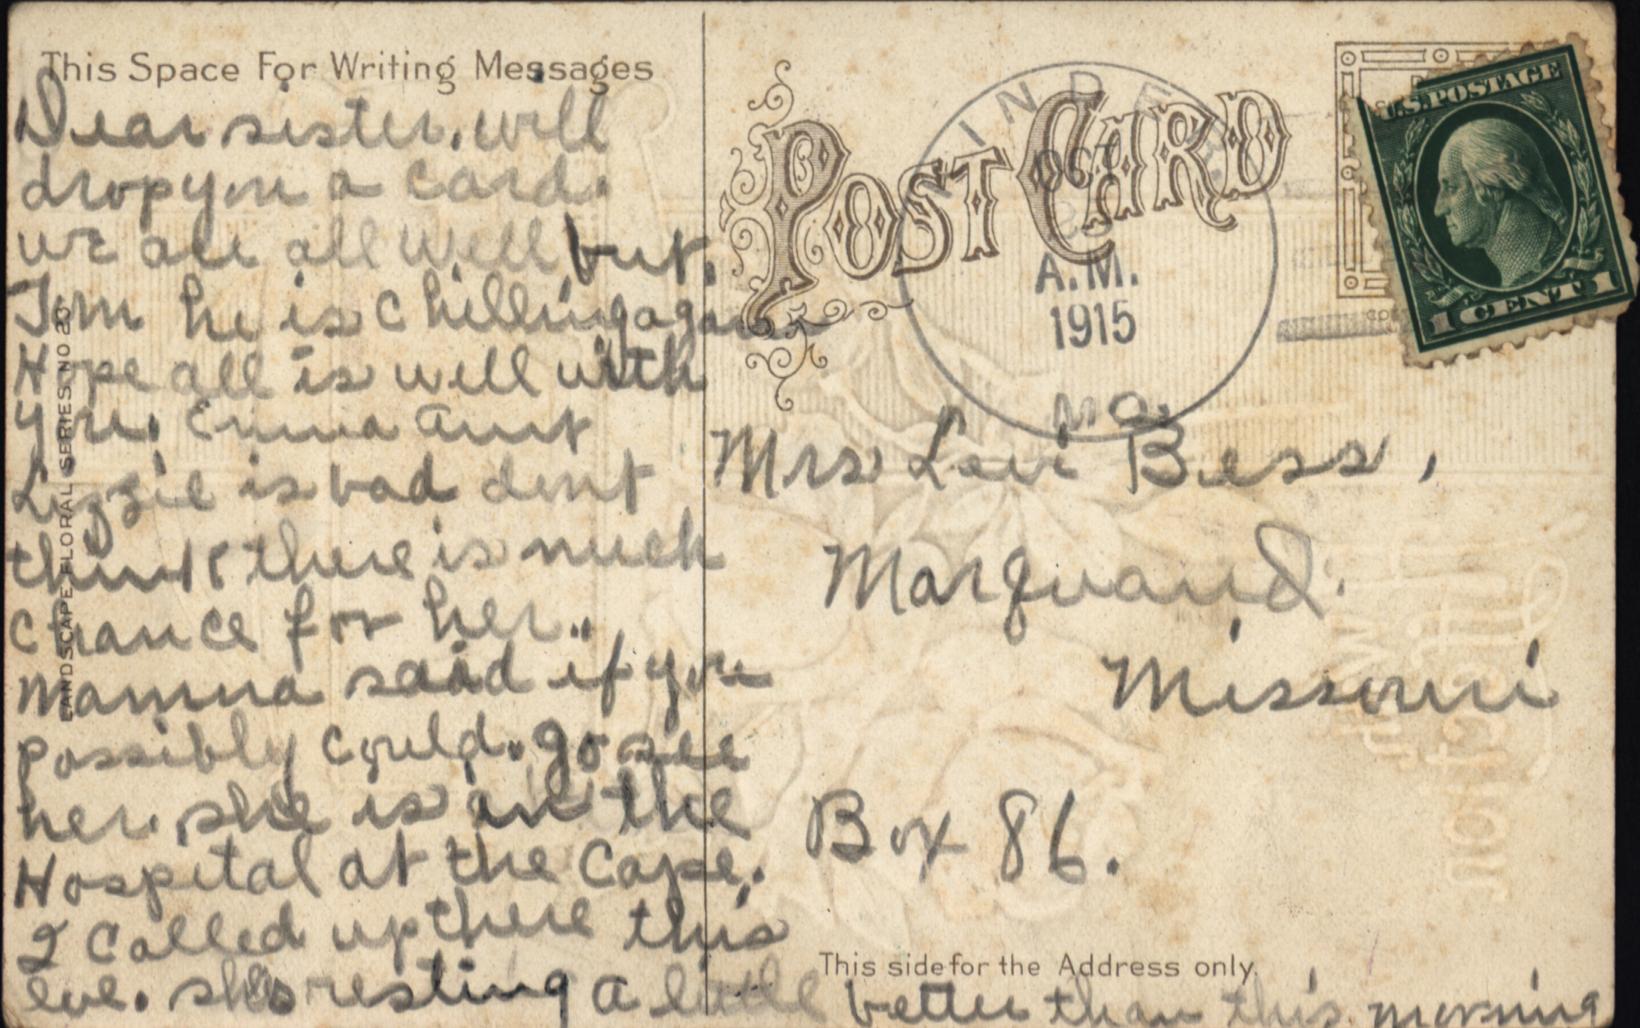 This Space For Writing Messages
Dear sister, will
drop you a card.
we are all well but.
Tom he is chilling again.
Hope all is well with
you. Emma aunt
Lizzie is bad dont
think there is much
chance for her..
Mamma said if you
possibly could. go see
her. she is in the
Hospital at the Cape.
I called up there this
eve. shes resting a little better than this morning
LANDSCAPE FLORAL SERIES NO 23
POST CARD
OCT
A.M.
1915
MO.
U.S. POSTAGE
1 CENT 1
Mrs Levi Bess,
Marquand.
Missouri
Box 86.
This side for the Address only.